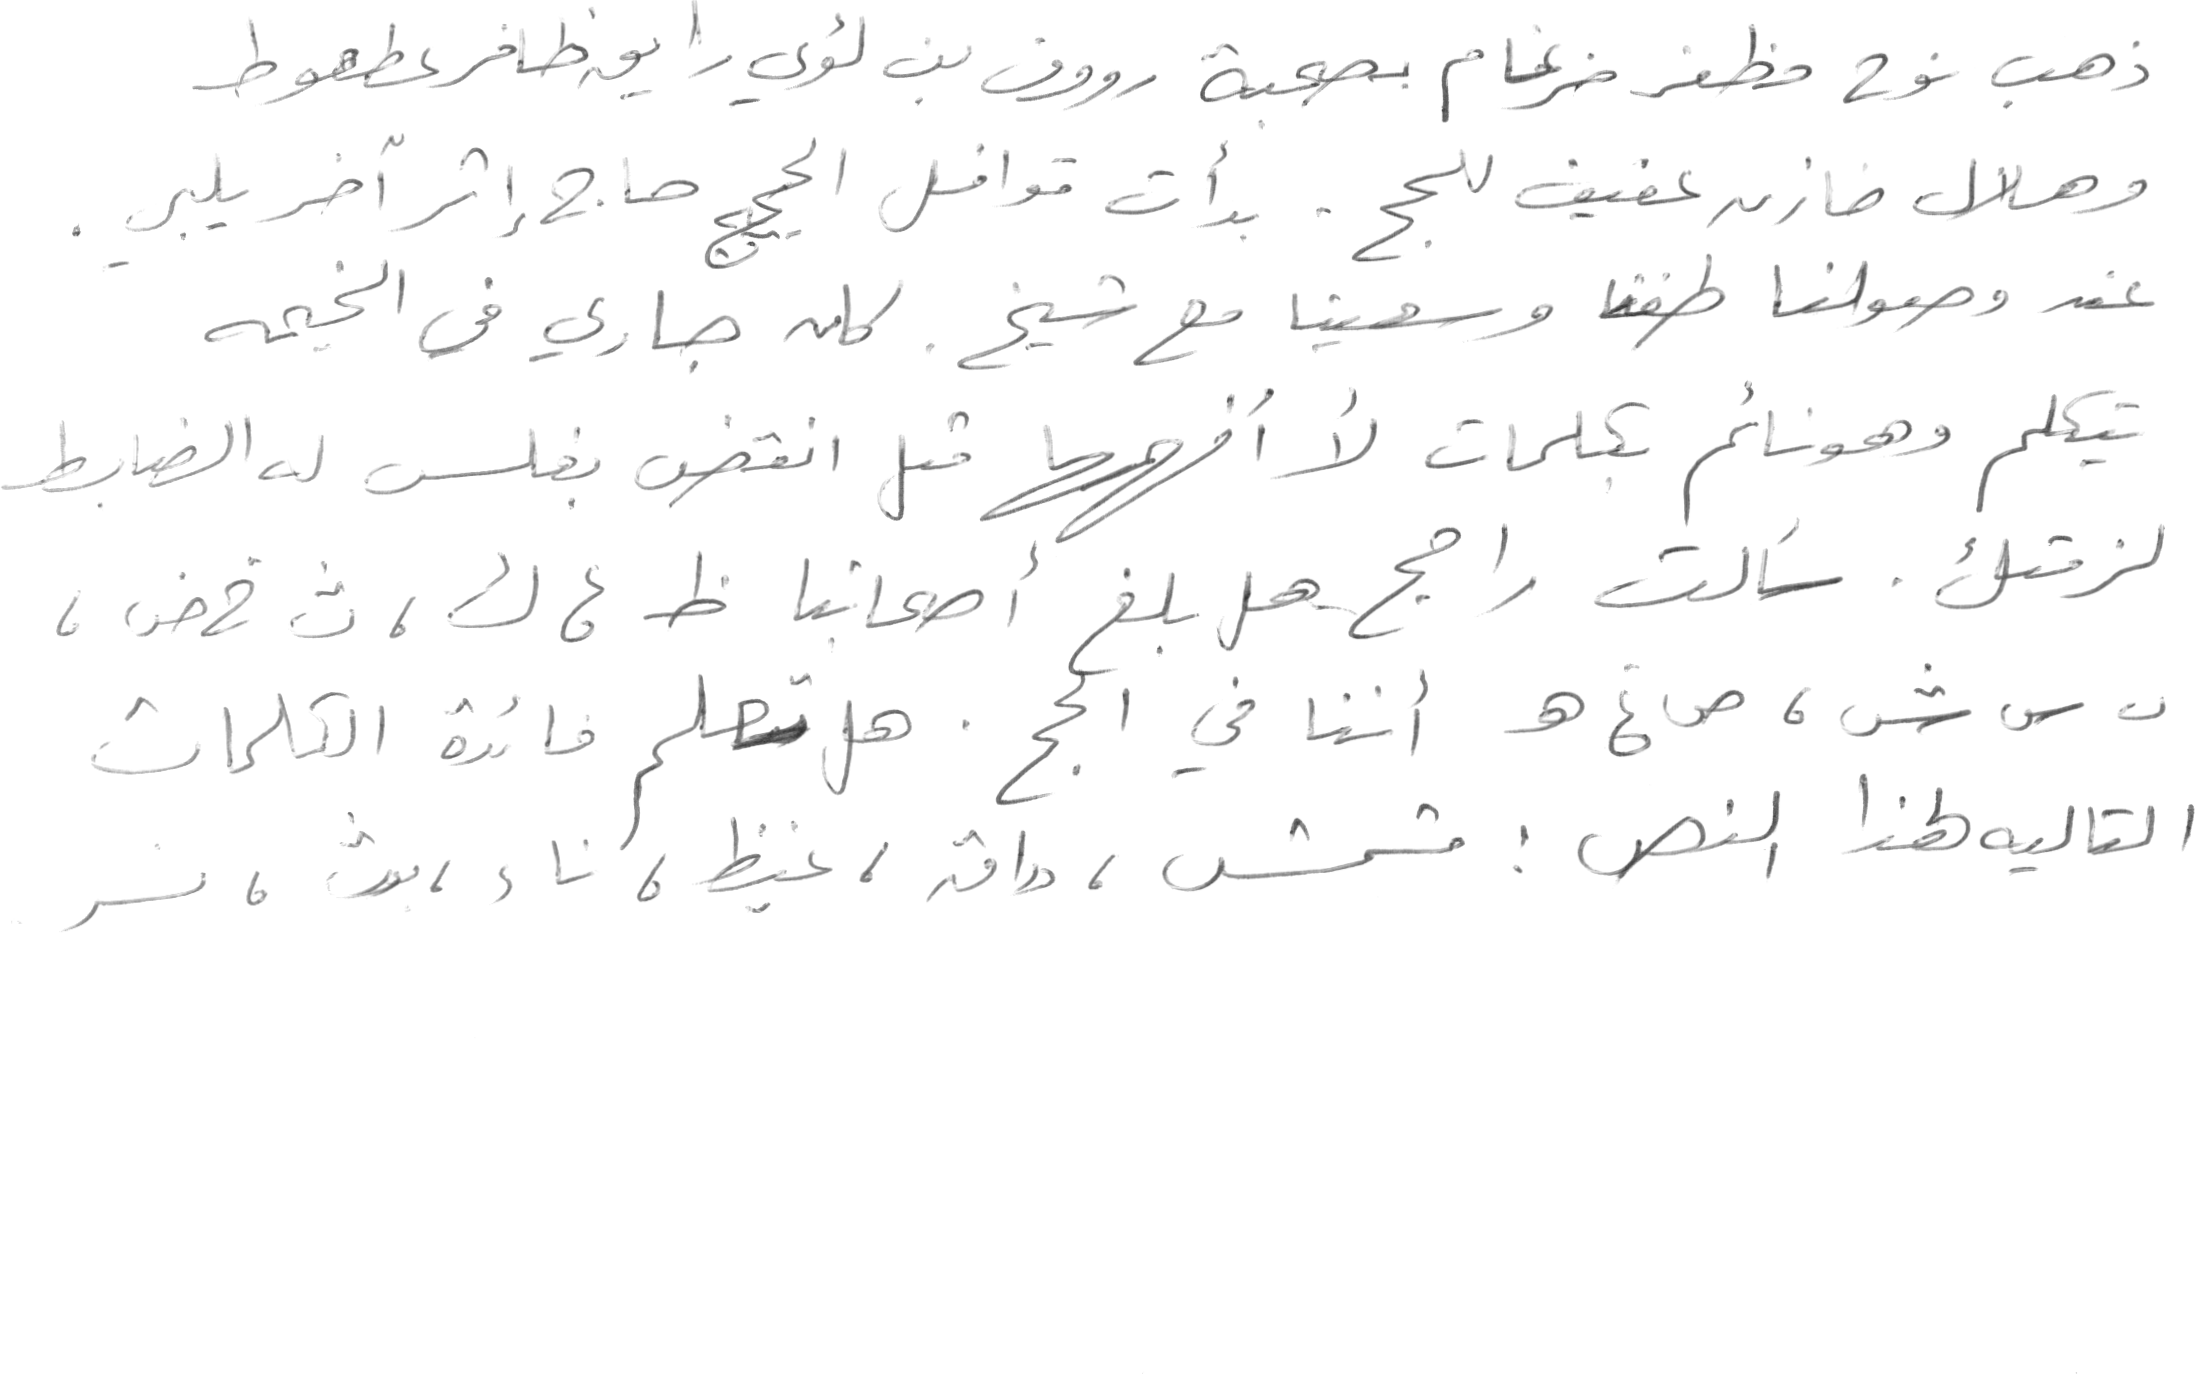 ذهب نوح مظفر ضرغام بصحبة رووف بن لؤي رايق ظافر عطعوط
وهلال خازن عفيف للحج . بدأت قوافل الحجيج حاج إثر آخر يلبي .
عند وصولنا طفنا وسعينا مع شيخ . كان جاري في الخيمه
يتكلم وهو نائم بكلمات لا أفهمها مثل انقض بغلس له الضابط
. سألت راجح هل بلغ أصحابنا ظ غ ك ، ث خ ض ،
ب س ش ، ص غ هـ أننا في الحج . هل تعلم فائدة الكلمات
التاليه لهذا النص : مشمش ، دافق ، غيظ ، ناء ، بث ، نسر